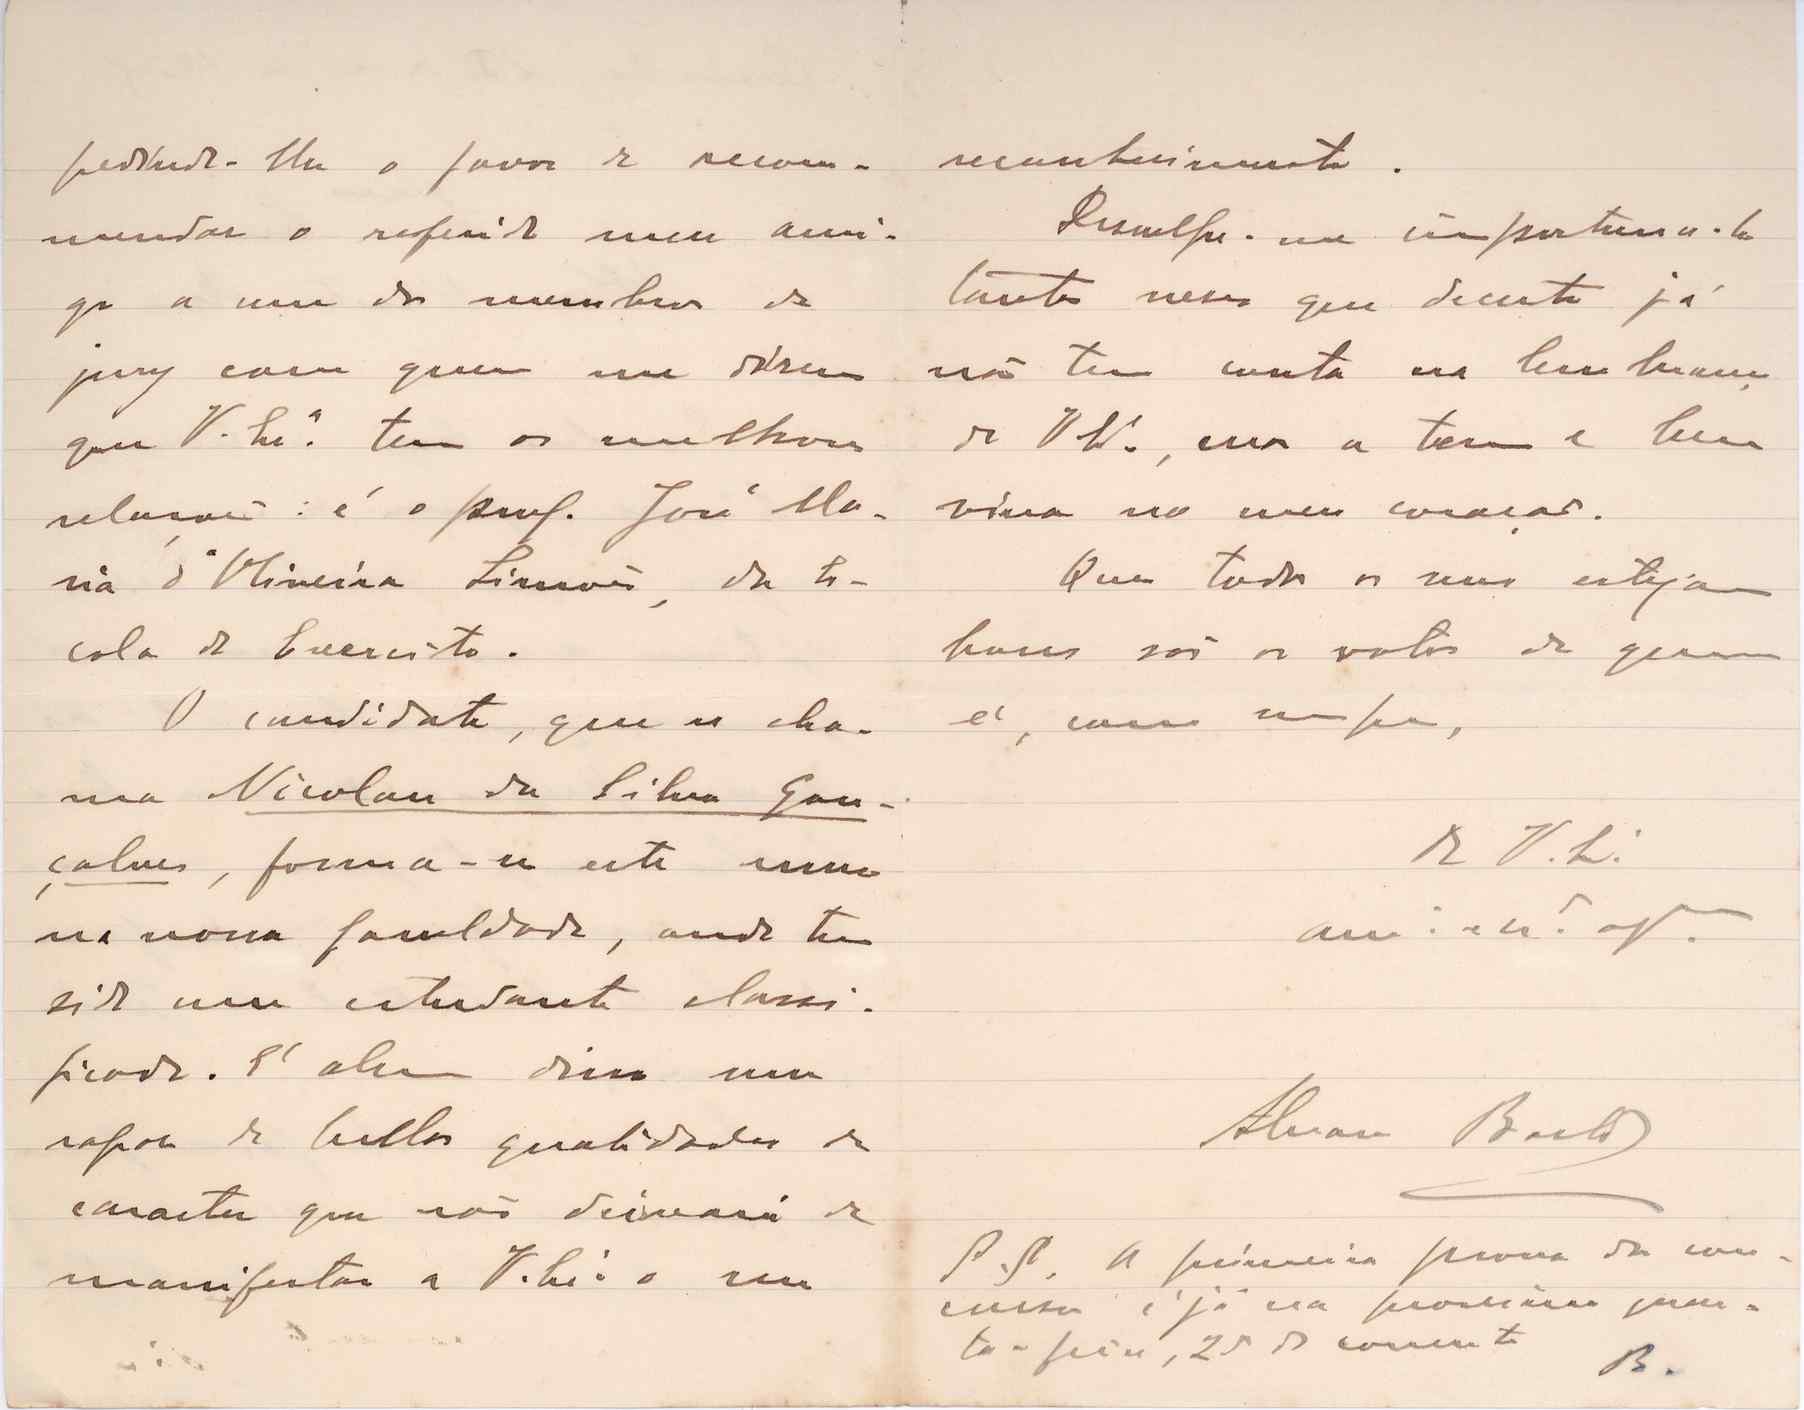 pedindo-lhe o favor de recom-
mendar o referido meu ami-
go a um dos membros do
jury com quem me dizem
que V. Ex.ª tem as melhores
relações: é o prof. José Ma-
ria d'Oliveira Simões, da Es-
cola do Exercito.
O candidato, que se cha-
ma Nicolau da Silva Gon-
çalves, forma-se este anno
na nossa faculdade, onde tem
sido um estudante classi-
ficado. É alem disso um
rapaz de bellas qualidades de
caracter que não deixará de
manifestar a V. Ex.ª o seu
reconhecimento.
Desculpe-me importuna-lo
tantas vezes que decerto já
não tem conta na lembrança
de V. Ex.ª, mas a tem e bem
viva no meu coração.
Que todos os seus estejam
bons são os votos de quem
é, como sempre,
De V. Ex.ª
Alvaro Basto
P.S. A primeira prova do con-
curso é já na proxima quar-
ta-feira, 25 do corrente
B.